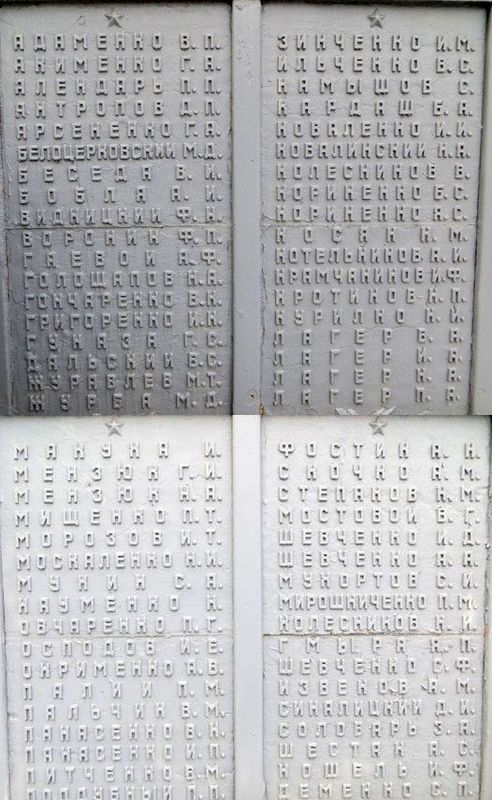 АДАМЕНКО В.П.
АКИМЕНКО Г.А.
АЛЕНДАРЬ П.П.
АНТРОПОВ Д.П.
АРСЕНЕНКО Г.А.
БЕЛОЦЕРКОВСКИЙ М.Д.
БЕСЕДА В.И.
БОБЛА А.И.
ВИДНИЦКИЙ Ф.К.
ВОРОНИН Ф.П.
ГАЕВОЙ А.Ф.
ГОЛОЩАПОВ Н.А.
ГОНЧАРЕНКО В.Н.
ГРИГОРЕНКО И.Н.
ГУКАЗА Г.С.
ДАЛЬСКИЙ В.С.
ЖУРАВЛЕВ М.Т.
ЖУРБА М.Д.
ЗИНЧЕНКО И.М.
ИЛЬЧЕНКО В.С.
КАМЫШОВ С.
КАРДАШ Б.А.
КОВАЛЕНКО И.И.
КОВАЛИНСКИЙ Н.А.
КОЛЕСНИКОВ В.
КОРИНЕНКО Б.С.
КОРИНЕНКО Я.С.
КОСАК Н.М.
КОТЕЛЬНИКОВ К.И.
КРАМЧАНИНОВ И.Ф.
КРОТИКОВ К.П.
КУРИЛКО К.И.
ЛАГЕР В.А.
ЛАГЕР И.А.
ЛАГЕР К.А.
ЛАГЕР П.А.
МАКУХА И.
МЕНЗЮК Г.И.
МЕНЗЮК Н.А.
МИЩЕНКО П.Т.
МОРОЗОВ И.Т.
МОСКАЛЕНКО Н.И.
МУКИН С.А.
НАУМЕНКО Н.
ОВЧАРЕНКО П.Г.
ОСПОДОВ И.Е.
ОХРИМЕНКО А.В.
ПАЛИЙ П.М.
ПАЛЬЧИН В.М.
ПАНАСЕНКО В.Н.
ПАНАСЕНКО И.П.
ПИТЧЕНКО В.М.
ФОСТИК А.К.
СКОЧКО А.М.
СТЕПАНОВ Н.М.
МОСТОВОЙ В.Г.
ШЕВЧЕНКО И.Д.
ШЕВЧЕНКО А.А.
МУХОРТОВ С.И.
МИРОШНИЧЕНКО П.М.
КОЛЕСНИКОВ К.И.
ГМЫРА А.П.
ШЕВЧЕНКО С.Ф.
ИЗВЕКОВ Н.М.
СИНАЛИЦКИЙ Д.И.
СОЛОВАРЬ З.А.
ШЕСТАК А.С.
КОШЕЛЬ И.Ф.
ДЕМЕНКО С.Д.